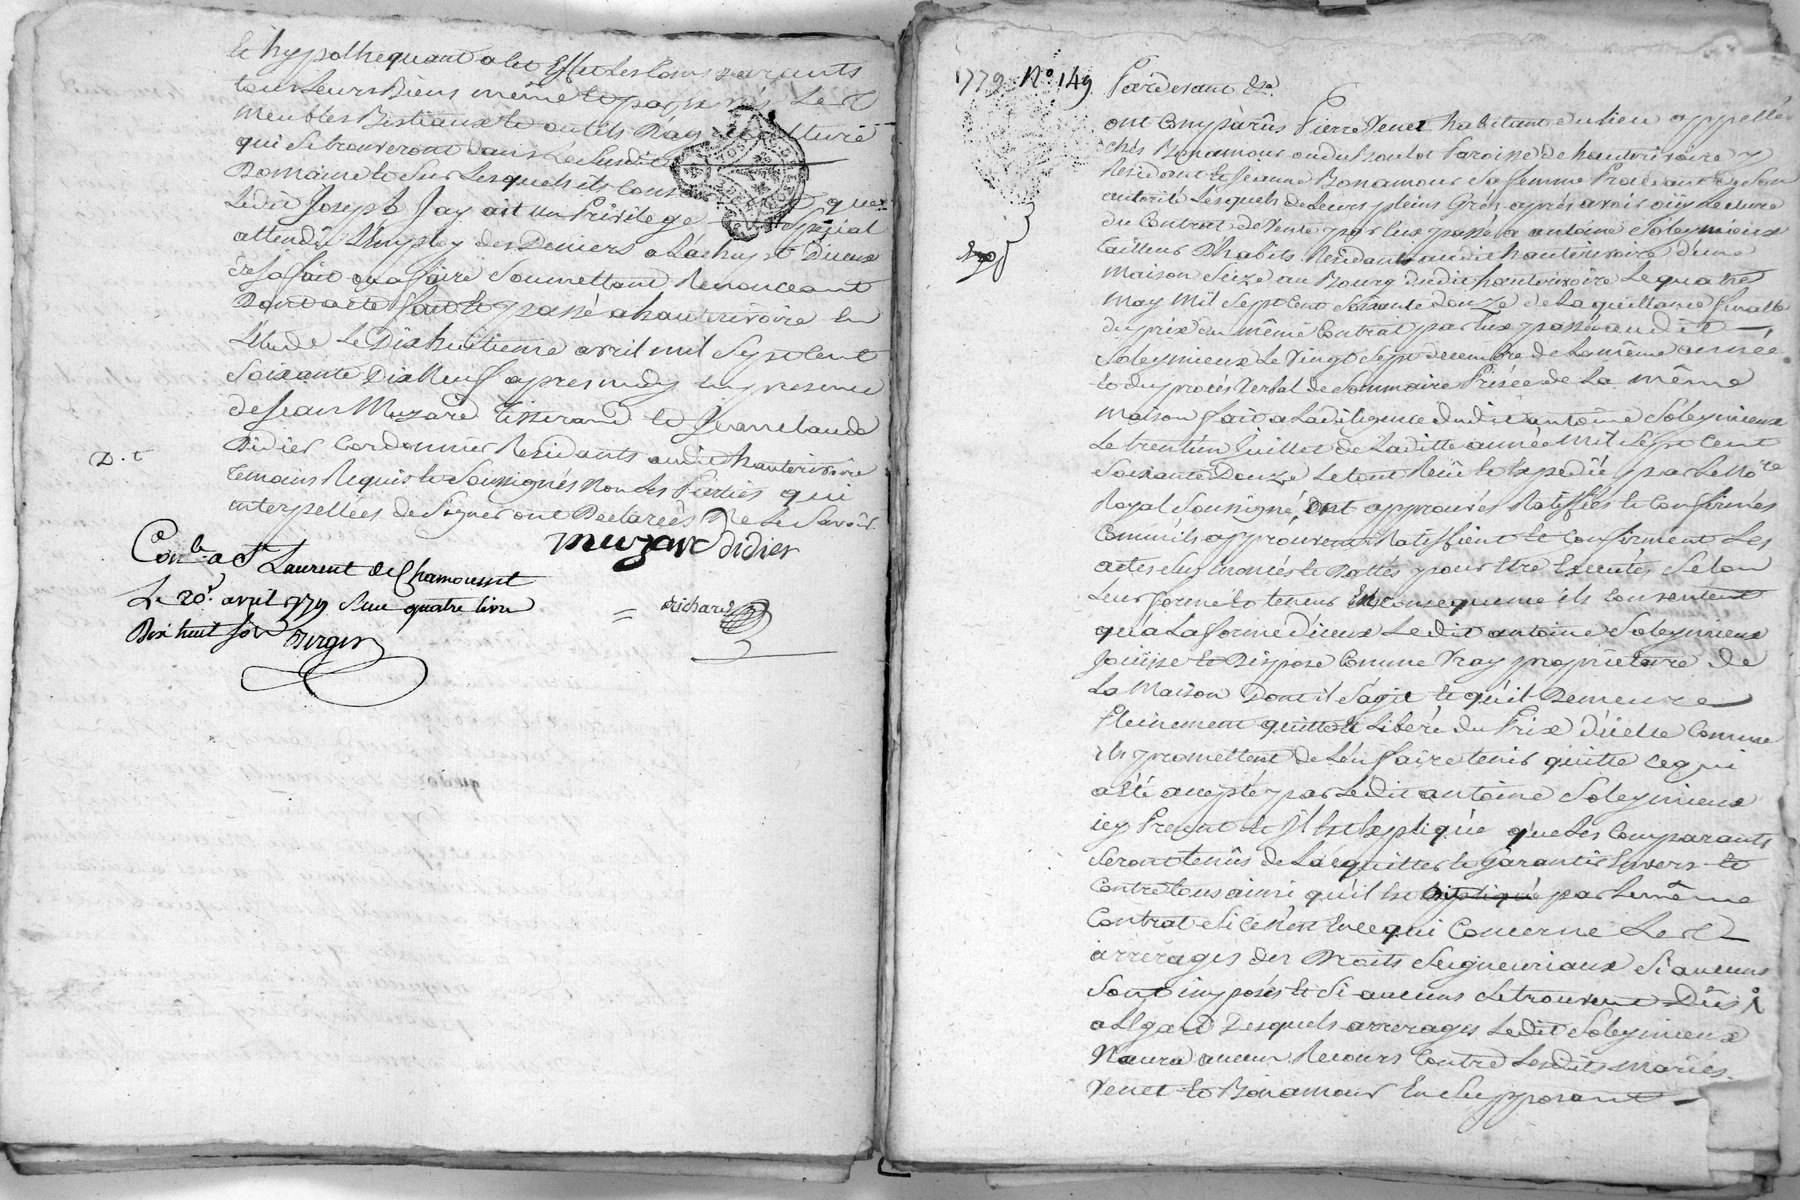 et hypothequant a cet Effet Les Comparants
tous Leurs Biens même et par exprès Les
Meubles Bestiaux et outils d'agriculture
qui Se trouveront dans Le Susdit
Domaine et Sur Lesquels ils Consentent que
Ledit Joseph Jay ait un Privilege Spécial
attendu L'employ des Deniers a Lachapt D'iceux
déja fait ou a faire Soumettant Renonceant
Dont acte fait et passé a hauterivoire en
L'étude Le Dixhuitieme avril mil Sept Cent
Soixante Dix Neuf apres midy en presence
de Jean Muzard tisserand et Jean claude
Didier Cordonnier Residants audit hauterivoire
temoins Requis et Soussignés Non Les Parties qui
interpellées de Signer ont Declarées Ne Le Savoir
D. C
muzard didier
Con.lé a St Laurent de Chamousset
Le 20e avril 1779 Reçu quatre livres
Dix huit sols Berger
= Richard
1779 N° 149 Pardevant &a
ont Comparûs Pierre Venet habitant du lieu appellé
chés Bonamour ou du Boulot Paroisse de hauterivoire y
Résidant et Jeanne Bonamour Sa femme Procedant de Son
autorité Lesquels de Leurs pleins Grés après avoir ouy Lecture
du Contrat de Vente par Eux passé a antoine Soleymieux
tailleur D'habits Résidant audit hauterivoire d'une
Maison Scize au Bourg dudit hauterivoire Le quatre
May Mil Sept Cent Soixante Douze de La quittance finalle
du prix du même Contrat par Eux passé audit
Soleymieux Le Vingt Sept decembre de La même année
et du procès Verbal de Sommaire Prisée de La même
Maison fait a La diligence dudit antoine Soleymieux
Le trentien Juillet de Laditte année Mil Sept Cent
Soixante Douze Le tout Reçu et Expedié par Le Nore
Royal Soussigné, ont approuvés Ratiffiés et Confirmés
Comme ils approuvent Ratiffient et Confirment Les
actes cy enoncés et Dattés pour être Executés Selon
Leur forme et teneur En Conséquence ils Consentent
qu'a La forme d'iceux Ledit antoine Soleymieux
Joüisse et Dispose Comme Vray proprietaire de
La Maison Dont il S'agit et qu'il Demeure
Pleinement quitte et Libéré du Prix D'icelle Comme
ils promettent de L'en faire tenir quitte ce qui
a été accepté par Ledit antoine Soleymieux
icy Present et Il Est Expliqué que Les Comparants
Seront tenûs de L'acquitter et Garantir Envers et
Contre tous ainsi qu'il Est Expliqué par Le même
Contrat Si ce N'est En ce qui Concerne Les
arrerages des Droits Seigneuriaux Si aucuns
Sont imposés et Si aucuns Se trouvent Dûs
a L'Egard Desquels arrerages Ledit Soleymieux
N'aura aucun Recours Contre Lesdits mariés
Venet et Bonamour En Supposant